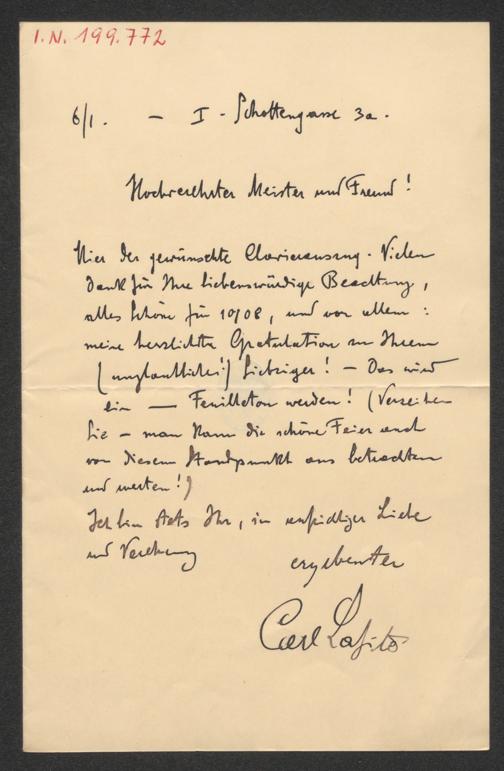 I.N. 199.772
6/1. — I - Schottengasse 3a.
Hochverehrter Meister und Freund!
Hier der gewünschte Clavierauszug. Vielen
Dank für Ihre liebenswürdige Beachtung,
alles Schöne für 1908, und vor allem:
meine herzlichste Gratulation zu Ihrem
(unglaublichen!) Siebziger! — Das wird
ein — Feuilleton werden! (Verzeihen
Sie — man kann die schöne Feier auch
von diesem Standpunkt aus betrachten
und werten!)
Ich bin stets Ihr, in aufrichtiger Liebe
und Verehrung ergebenster
Carl Lafite